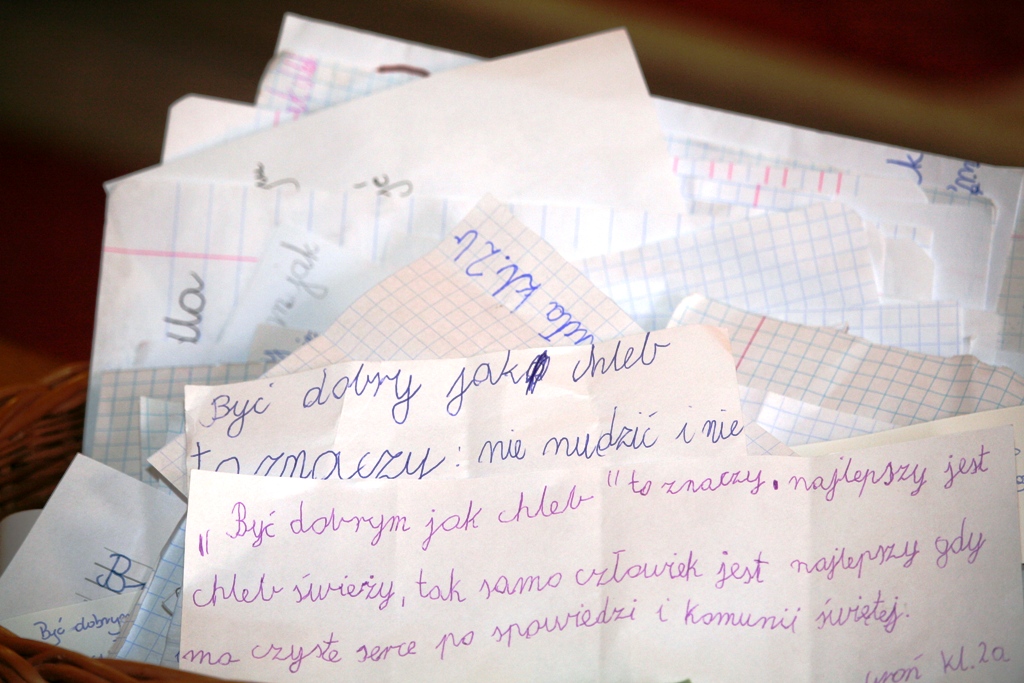 kl.2b
Być dobry jak chleb
to znaczy: nie nudzić i nie
„Być dobrym jak chleb" to znaczy. najlepszy jest
chleb świeży, tak samo człowiek jest najlepszy gdy
ma czyste serce po spowiedzi i komunii świętej.
kl.2a
jak
B
Być dobrym